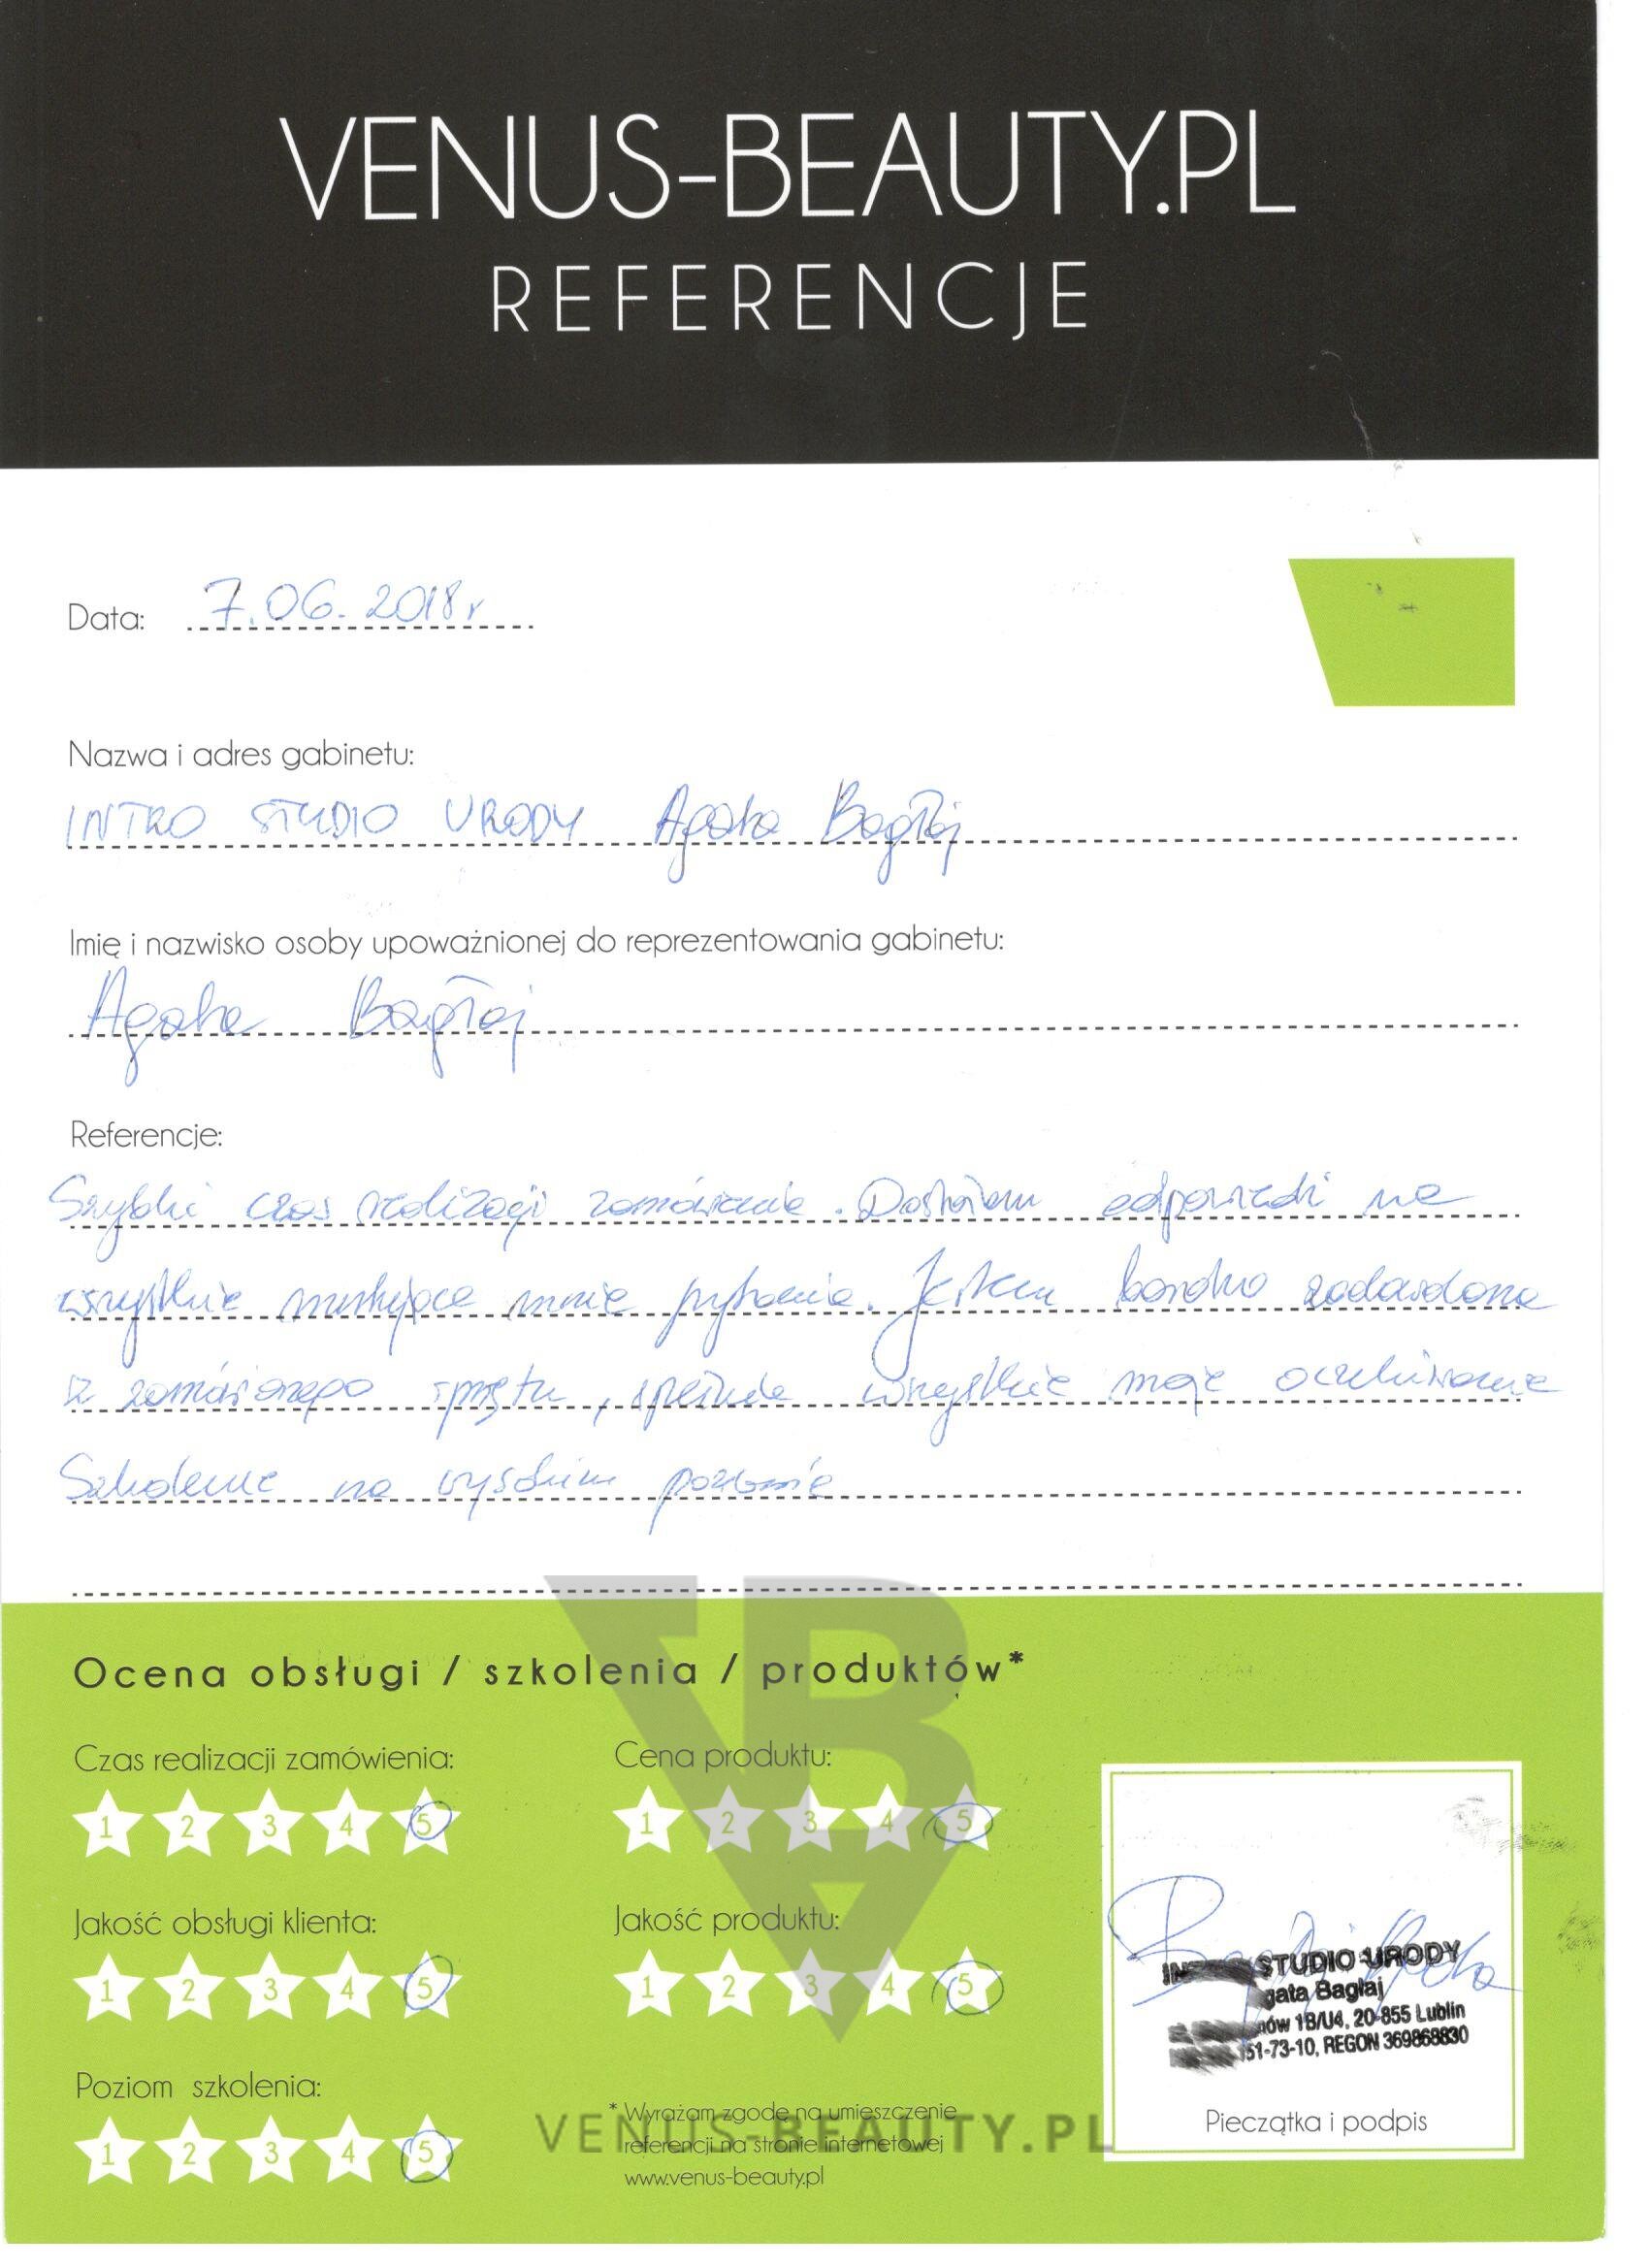 VENUS-BEAUTY.PL
REFERENCJE
Data: 7.06.2018r
Nazwa i adres gabinetu:
INTRO STUDIO URODY Agata Bagłaj
Imię i nazwisko osoby upoważnionej do reprezentowania gabinetu:
Agata Bagłaj
Referencje:
Szybki czas realizacji zamówienia. Dostałam odpowiedzi na
wszystkie nurtujące mnie pytania. Jestem bardzo zadowolona
z zamówionego sprzętu, spełnia wszystkie moje oczekiwania
Szkolenie na wysokim poziomie
Ocena obsługi / szkolenia / produktów*
Czas realizacji zamówienia:
1 2 3 4 5
Cena produktu:
1 2 3 4 5
Jakość obsługi klienta:
1 2 3 4 5
Jakość produktu:
1 2 3 4 5
Poziom szkolenia:
1 2 3 4 5
* Wyrażam zgodę na umieszczenie
referencji na stronie internetowej
www.venus-beauty.pl
VENUS-BEAUTY.PL
STUDIO URODY
Bagłaj
1B/U4, 20-855 Lublin
51-73-10, REGON 369868830
Pieczątka i podpis